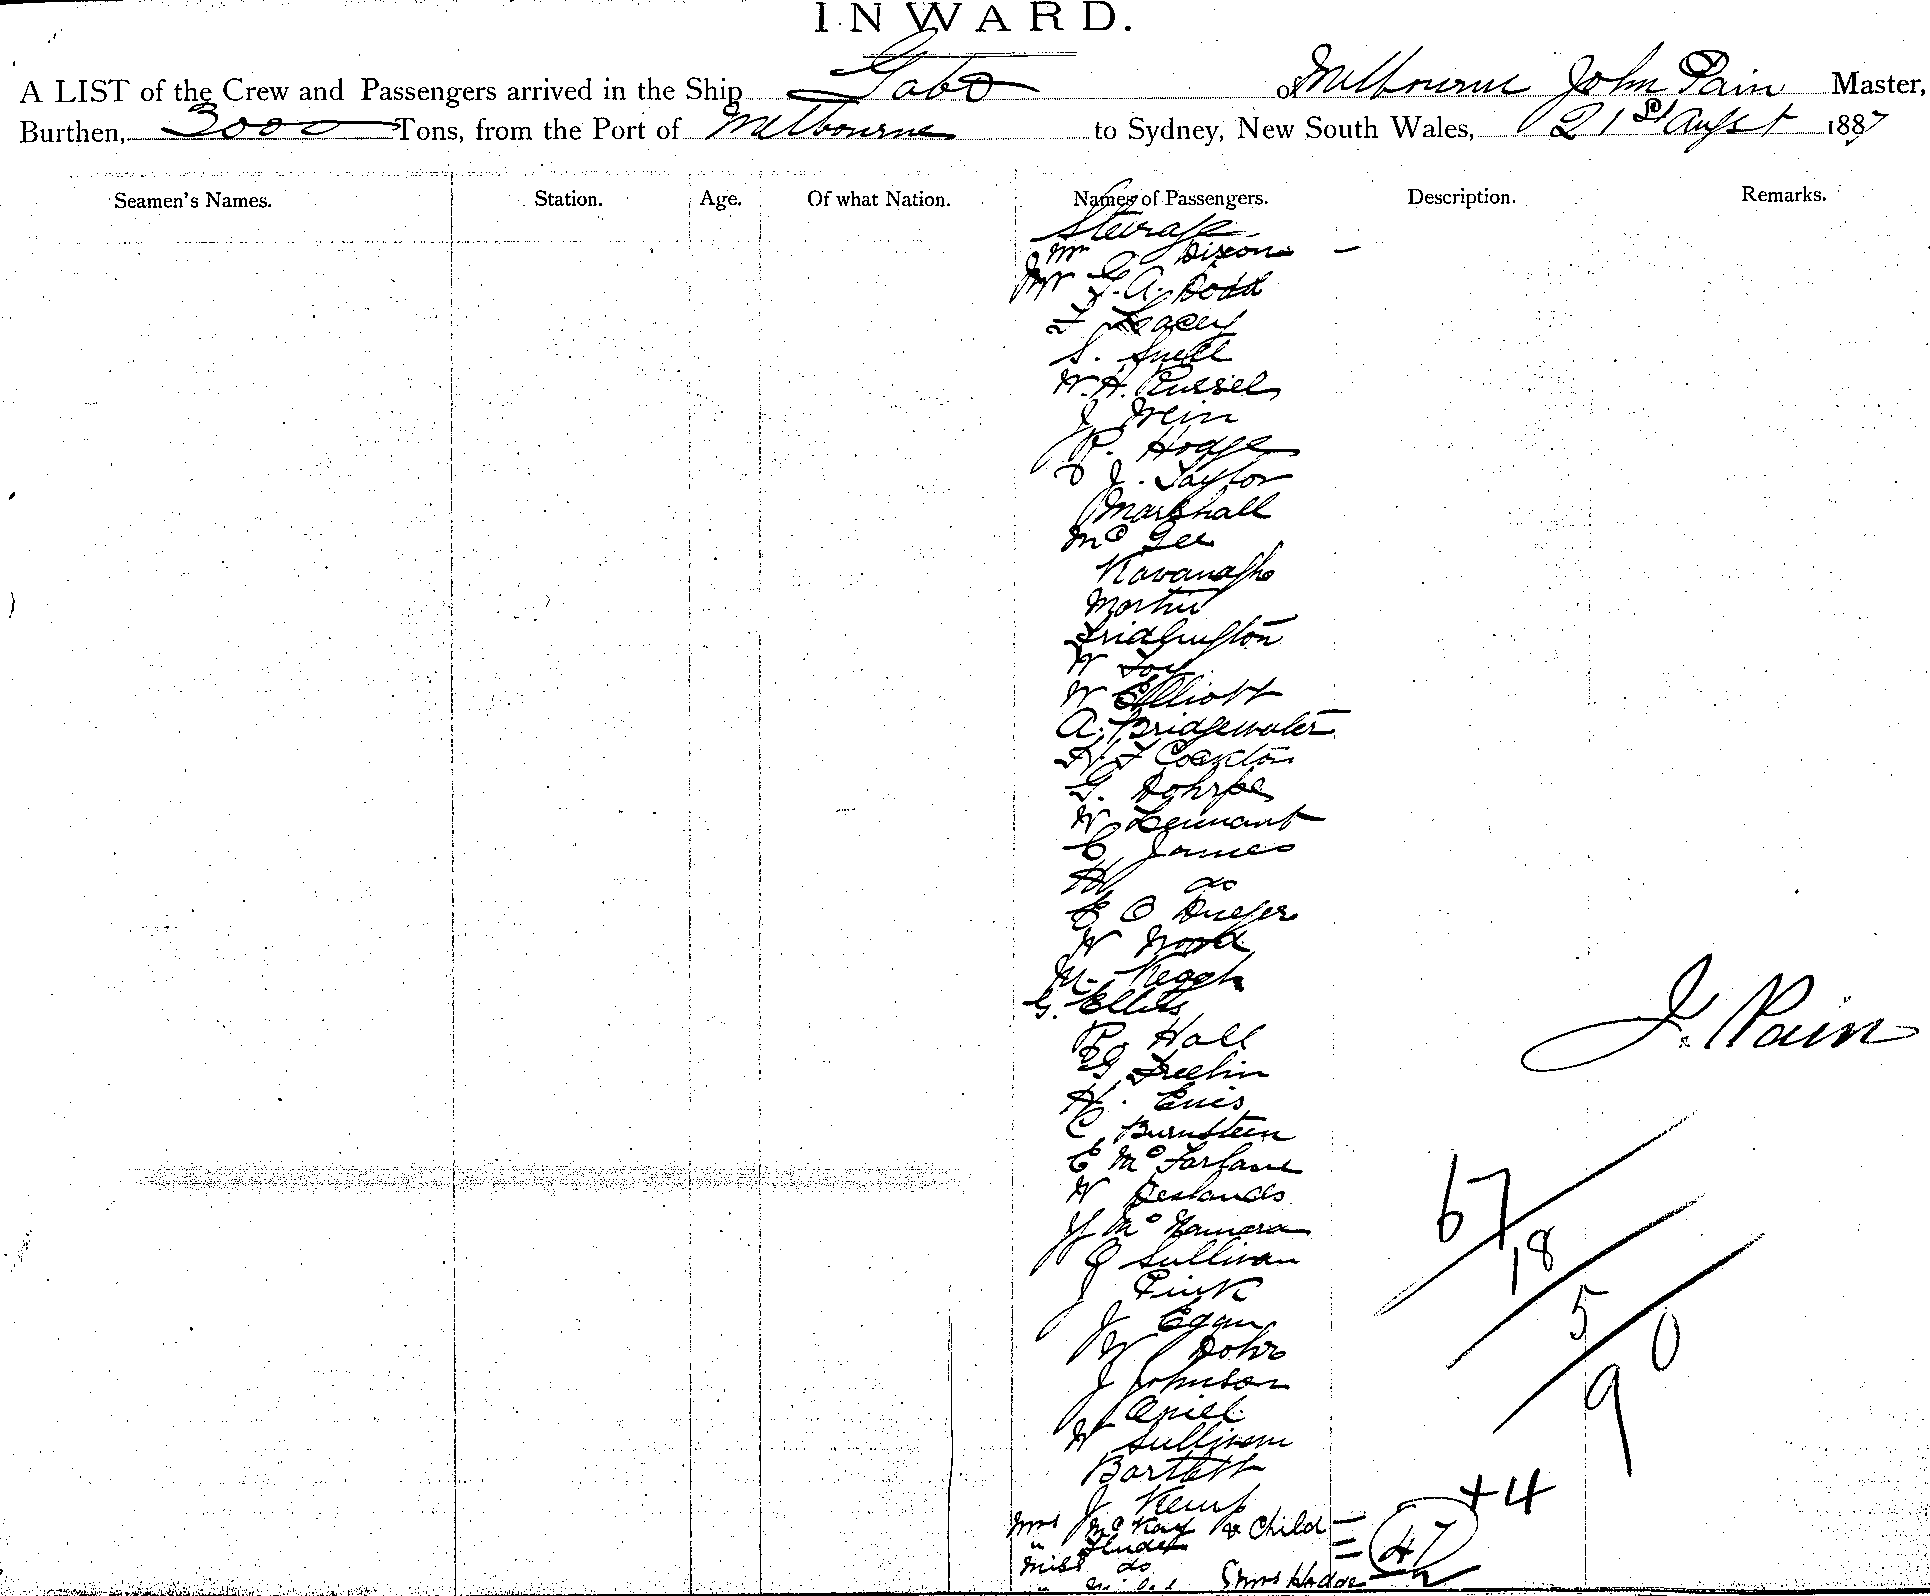 INWARD.
A LIST of the Crew and Passengers arrived in the Ship Gabo of Melbourne John Pain Master,
Burthen, 3000 Tons, from the Port of Melbourne to Sydney, New South Wales, 21st Augst 1887
Seamen's Names. Station. Age. Of what Nation. Names of Passengers. Description. Remarks.
Steerage
Mr Dixon
Mr G. A. Dodd
F Lacey
S. Snell
W. H. Russel
J Wein
P. Hodge
J. Taylor
Marshall
Mc Gee
Kavanagh
Martin
Fridlington
W
W Elliott
A. Bridgewater
H F Cockton
G. Dohrpe
W Tennant
C James
H do
E C
W Wood
M. Keogh
G. Ellis
P. Hall
H. Enis
C Burnstein
E McFarlane
W Deslands
J McNamara
J Sullivan
J Pink
J Egan
W Dohr
J Johnson
W Sullivan
Bartlett
J Kemp
Mrs McKay & Child
Miss do
J. Pain
67
18
5
0
9
+4
47